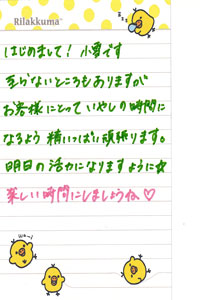 Rilakkuma™
はじめまして!小夢です
至らないところもありますが
お客様にとっていやしの時間に
なるよう精いっぱい頑張ります。
明日の活力になりますように☆
楽しい時間にしましょうね♡